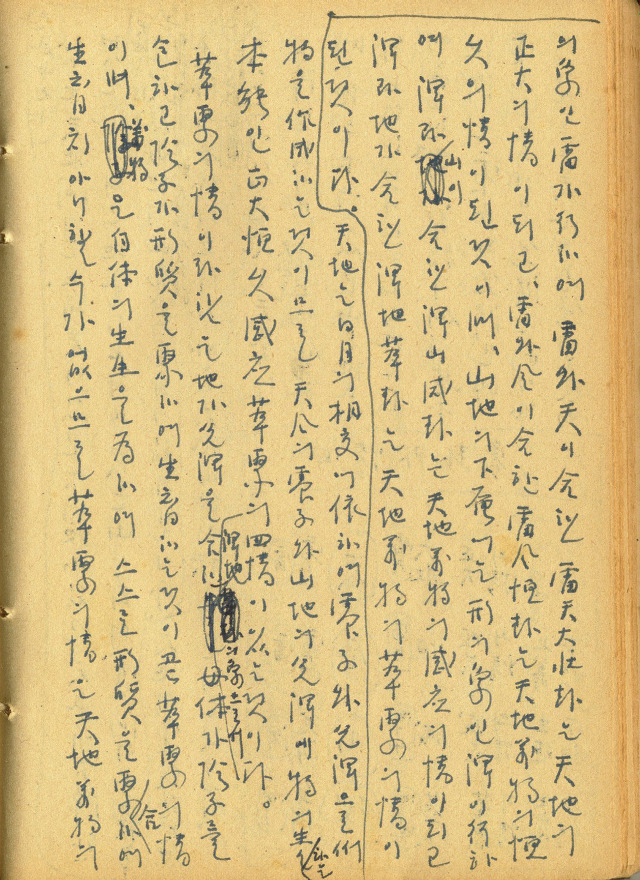 의象인雷가行하며 雷와天이合한 雷天大壯卦는 天地의
正大의情이되고、雷와風이合한 雷風恒卦는 天地萬物의恒
久의情이된것이며、山地의下에는 形의象인澤이行하
여 澤과山이 合한 澤山咸卦는 天地萬物의感應의情이되고
澤과地가合한 澤地萃卦는 天地萬物의萃聚의情이
된것이라。天地는日月의相交에依하여 震子와兌澤으로
物을作成하는것이므로 天風의震子와山地의兌澤에 物의生하는
本能인 正大恒久感應萃聚의四情이있는것이다。
萃聚의情이라함은地가兌澤을合한 澤地 의象으로서 母体가陰子를
包하고 陰子가形質을聚하여生育하는것이곧萃聚의情
이며、萬物은自体의生生을爲하여 스스로形質을聚合하여
生育치아니할수가없으므로萃聚의情은天地萬物의